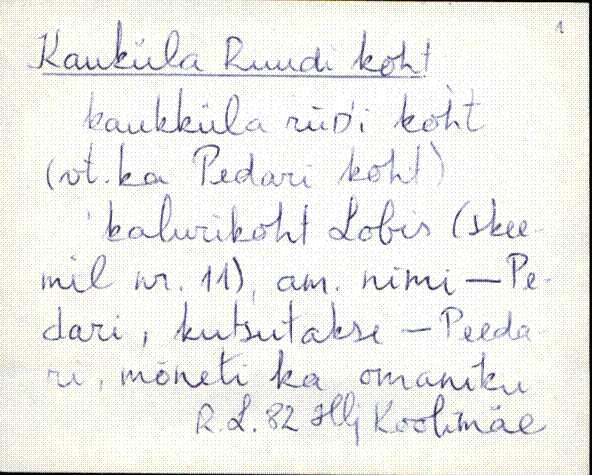 1
Kauküla Ruudi koht
kaukküla rüDi koht
(vt. ka Pedari koht)
kalurikoht Lobis (skee-
mil nr. 11), am. nimi — Pe-
dari, kutsutakse — Peeda-
ri, mõneti ka omaniku
R. L. 82 Koolimäe